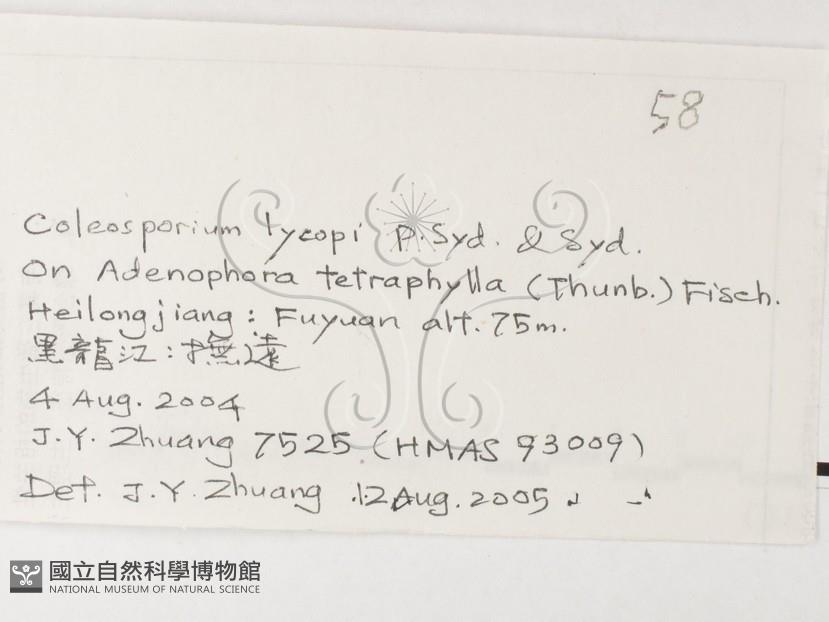 58
Coleosporium lycopi P. Syd. & Syd.
On Adenophora tetraphylla (Thunb.) Fisch.
Heilongjiang: Fuyuan alt. 75m.
黑龍江:撫遠
4 Aug. 2004
J.Y. Zhuang 7525 (HMAS 93009)
Det. J.Y. Zhuang 12 Aug. 2005
國立自然科學博物館
NATIONAL MUSEUM OF NATURAL SCIENCE